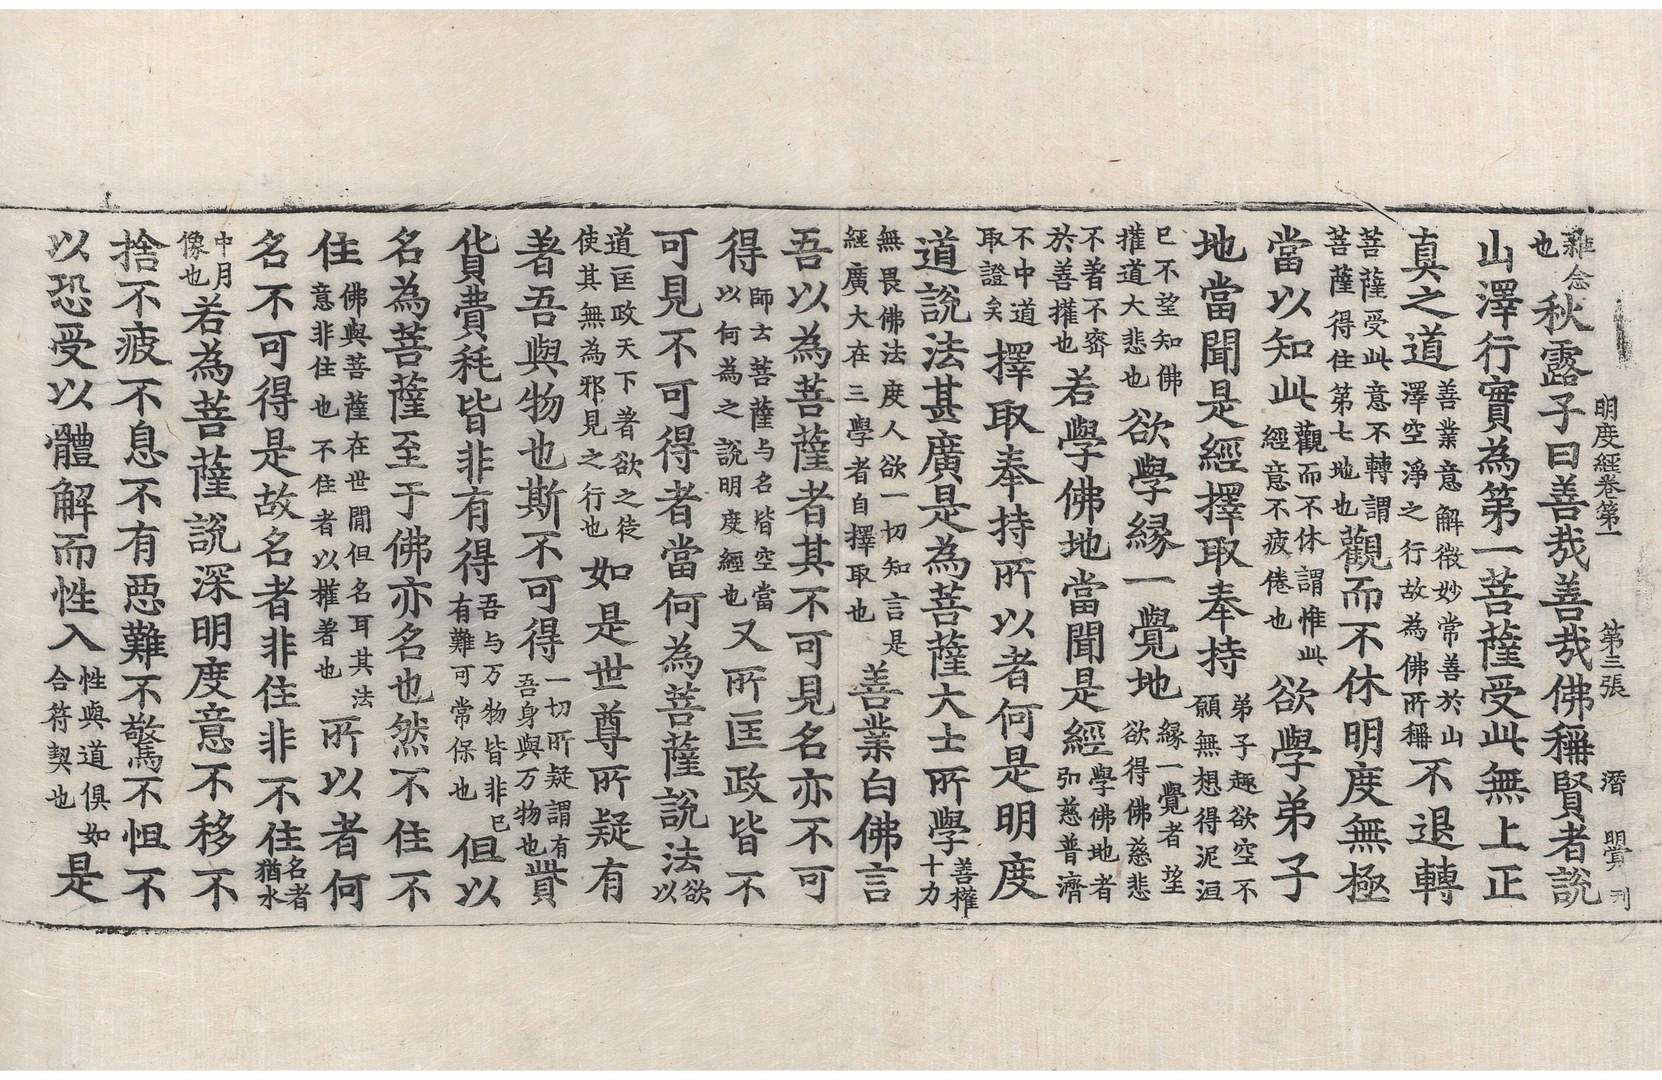 明度經卷第一　第三張　潛　刊
雜念
也秋露子曰善哉善哉佛稱賢者說
山澤行實為第一菩薩受此無上正
真之道善業意解微妙常善於山
澤空淨之行故為佛所稱不退轉
菩薩受此意不轉謂
菩薩得住第七地也觀而不休明度無極
當以知此觀而不休謂惟此
經意不疲倦也欲學弟子
地當聞是經擇取奉持弟子趣欲空不
願無想得泥洹
已不望知佛
權道大悲也欲學緣一覺地緣一覺者望
欲得佛慈悲
不著不密
於善權也若學佛地當聞是經學佛地者
弘慈普濟
不中道
取證矣擇取奉持所以者何是明度
道說法甚廣是為菩薩大士所學善權
十力
無畏佛法度人欲一切知言是
經廣大在三學者自擇取也善業白佛言
吾以為菩薩者其不可見名亦不可
得師云菩薩与名皆空當
以何為之說明度經也又所匡政皆不
可見不可得者當何為菩薩說法欲
以
道匡政天下著欲之徒
使其無為邪見之行也如是世尊所疑有
著吾與物也斯不可得一切所疑謂有
吾身與万物也貲
貨費耗皆非有得吾与万物皆非已
有難可常保也但以
名為菩薩至于佛亦名也然不住不
住佛與菩薩在世間但名耳其法
意非住也不住者以權著也所以者何
名不可得是故名者非住非不住名者
猶水
中月
像也若為菩薩說深明度意不移不
捨不疲不息不有惡難不驚不怛不
以恐受以體解而性入性與道俱如
合符契也是